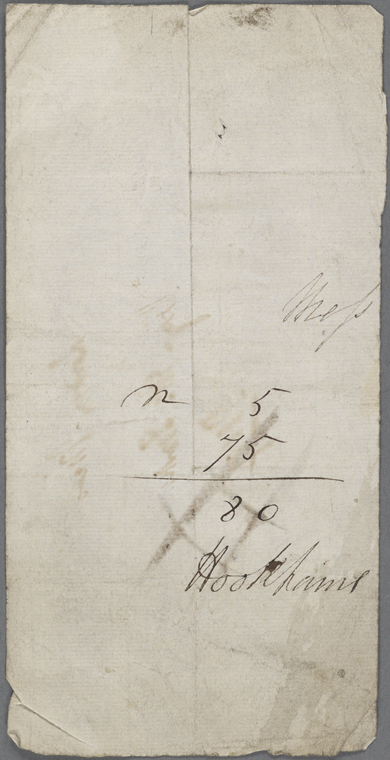 Mess
n 5
75
80
Hookhams